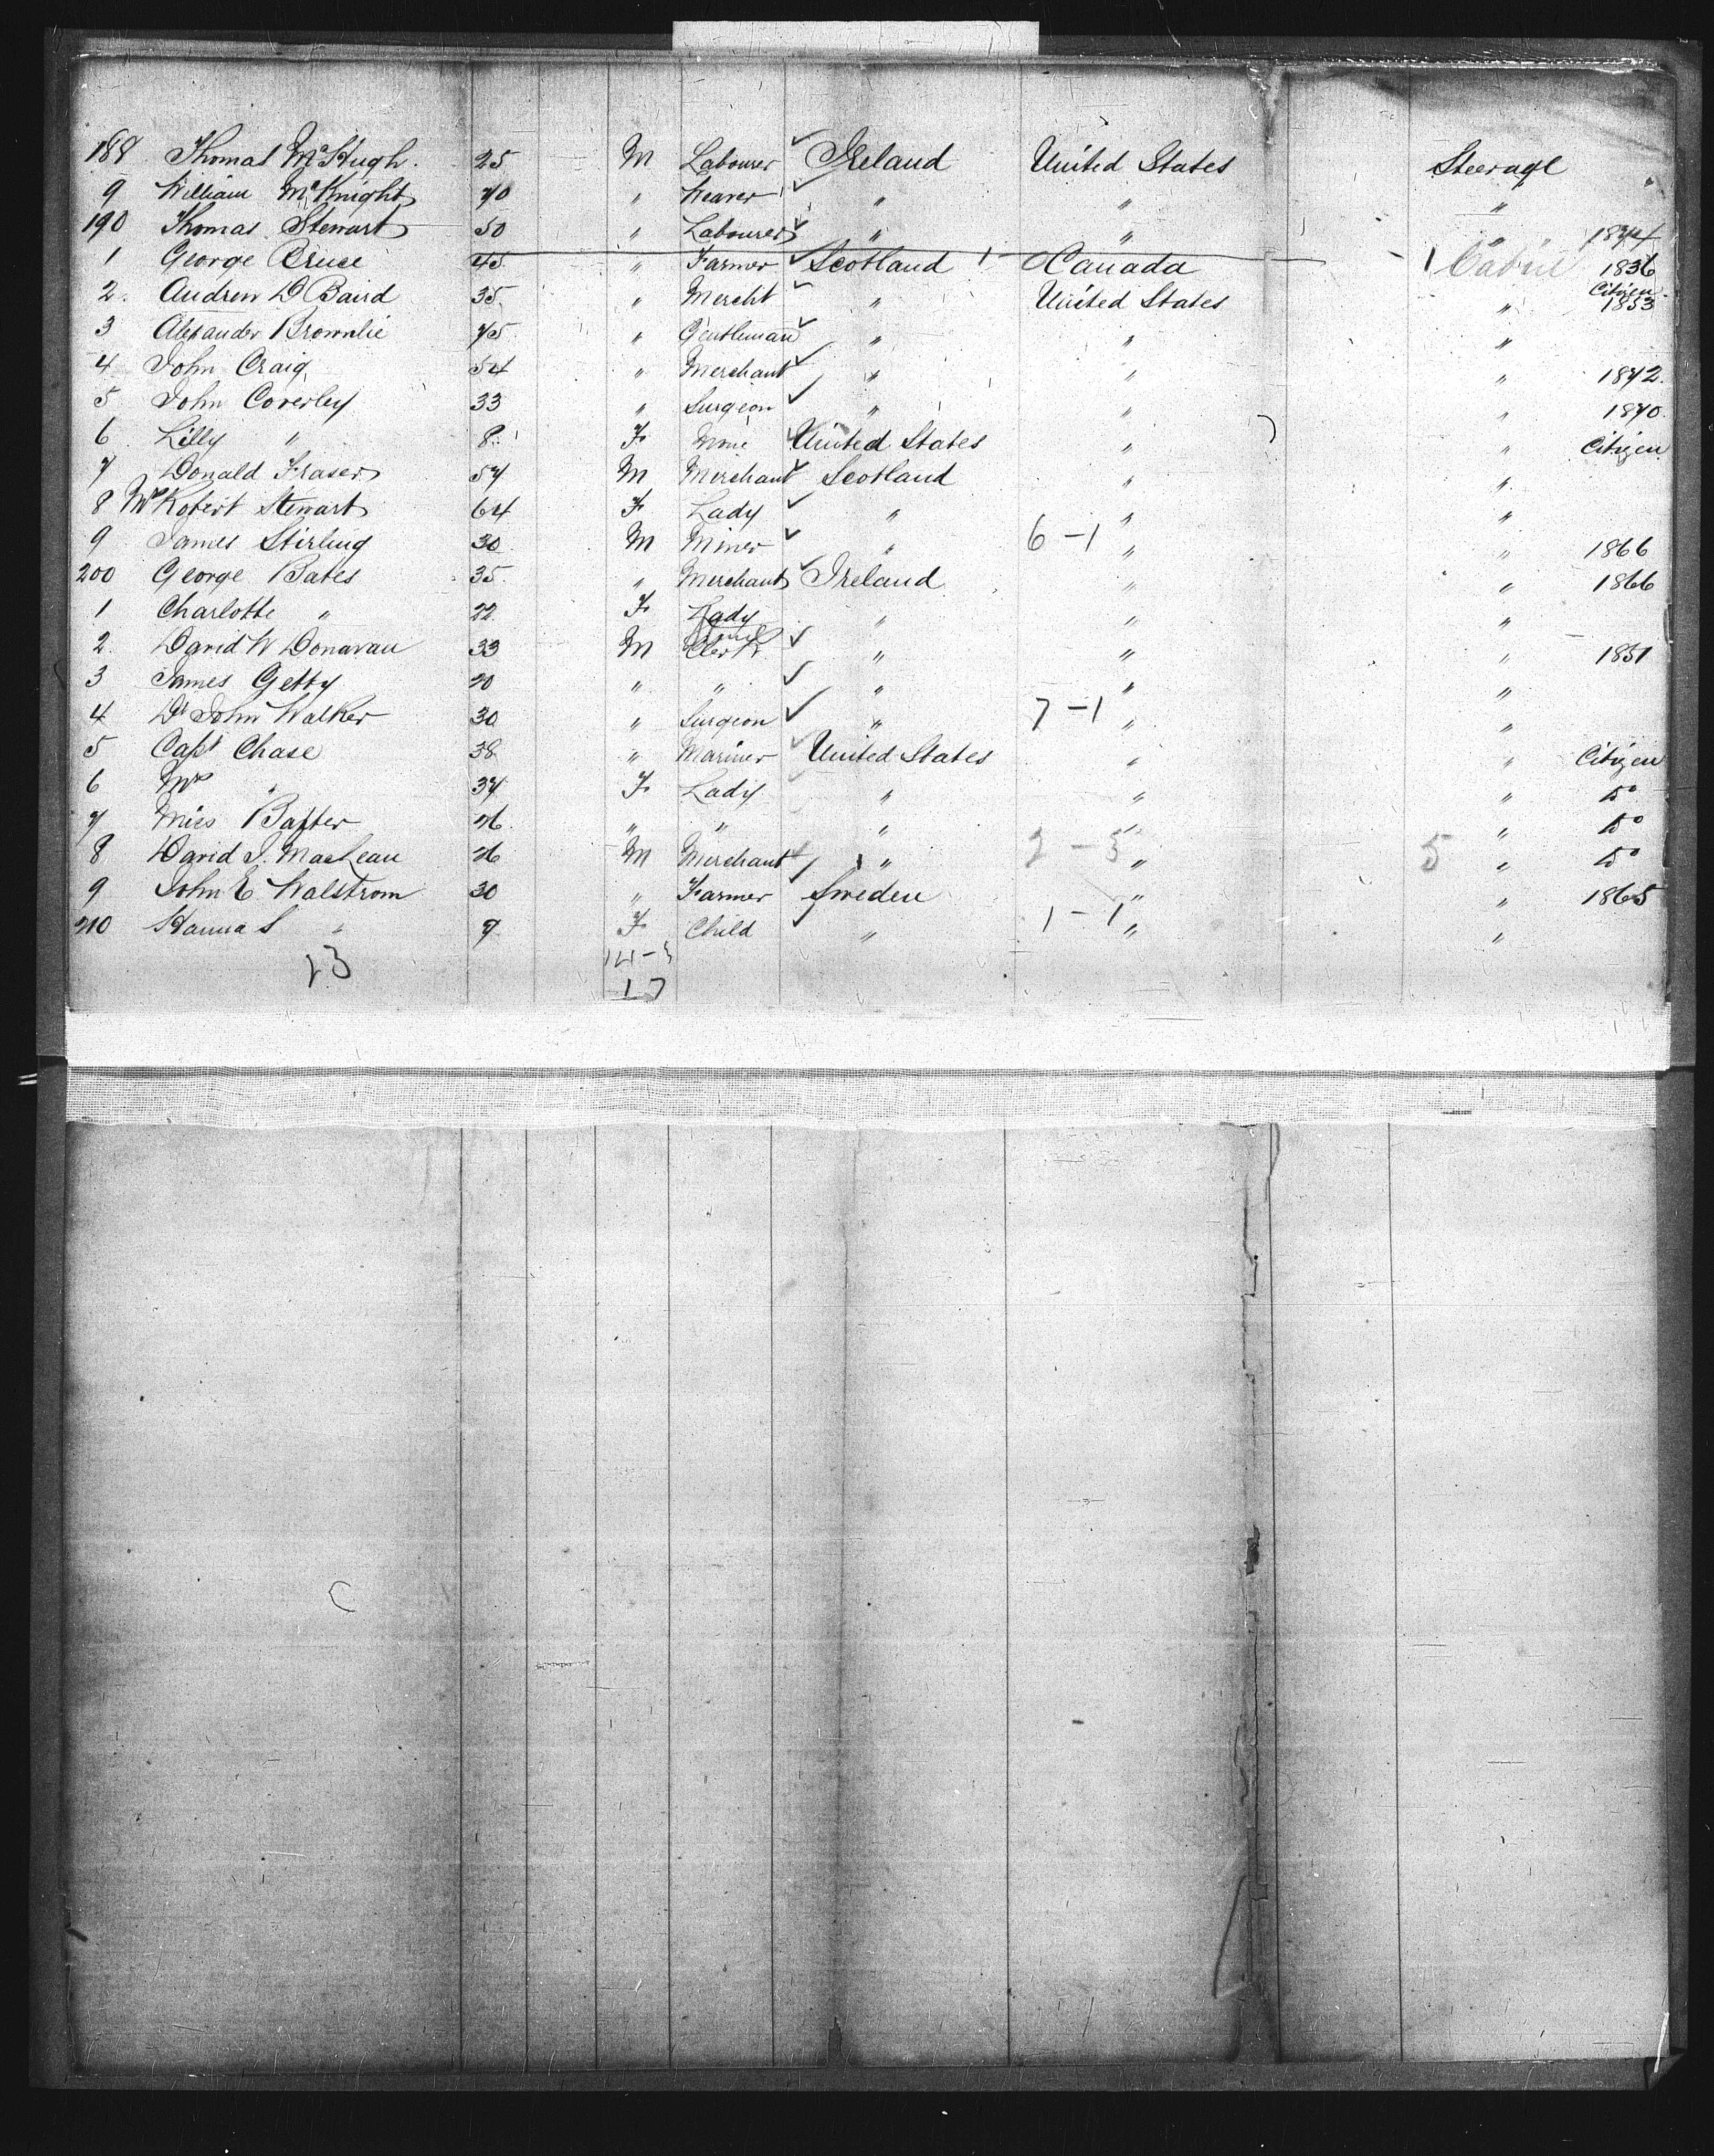 188 Thomas McHugh. 25 M Labourer Ireland United States Steerage
9 William McKnight 40 " Weaver " " " "
190 Thomas Stewart 50 " Labourer " " " 1844
1 George Bruce 45 " Farmer Scotland 1 Canada 1 Cabin 1836
2. Andrew D Baird 35. " Mercht " United States " Citizen 1853
3 Alexander Brownlie 45 " Gentleman " " "
4 John Craig 54 " Merchant " " " 1842.
5 John Coverley 33 " Surgeon " " " 1840.
6 Lilly " 8 F None United States " " Citizen
7 Donald Fraser 54 M Merchant Scotland " "
8 Mrs Robert Stewart 64 F Lady " " "
9 James Stirling 30 M Miner " 6-1 " " 1866
200 George Bates 35. " Merchant Ireland " " 1866
1 Charlotte " 22 F Lady " " "
2. David W Donavan 33 M Clerk " " " 1851
3 James Getty 20 " " " " "
4 Dr John Walker 30 " Surgeon " 7-1 " "
5 Capt Chase 38 " Mariner United States " " Citizen
6 Mrs " 34 F Lady " " " Do
7 Miss Baxter 26. " " " " " Do
8 David J. MacLean 26 M Merchant " 2-3 " 5 " Do
9 John E Walstrom 30 " Farmer Sweden " " 1865
210 Hanna S " 9 F Child " 1-1 " "
23 14-3
17